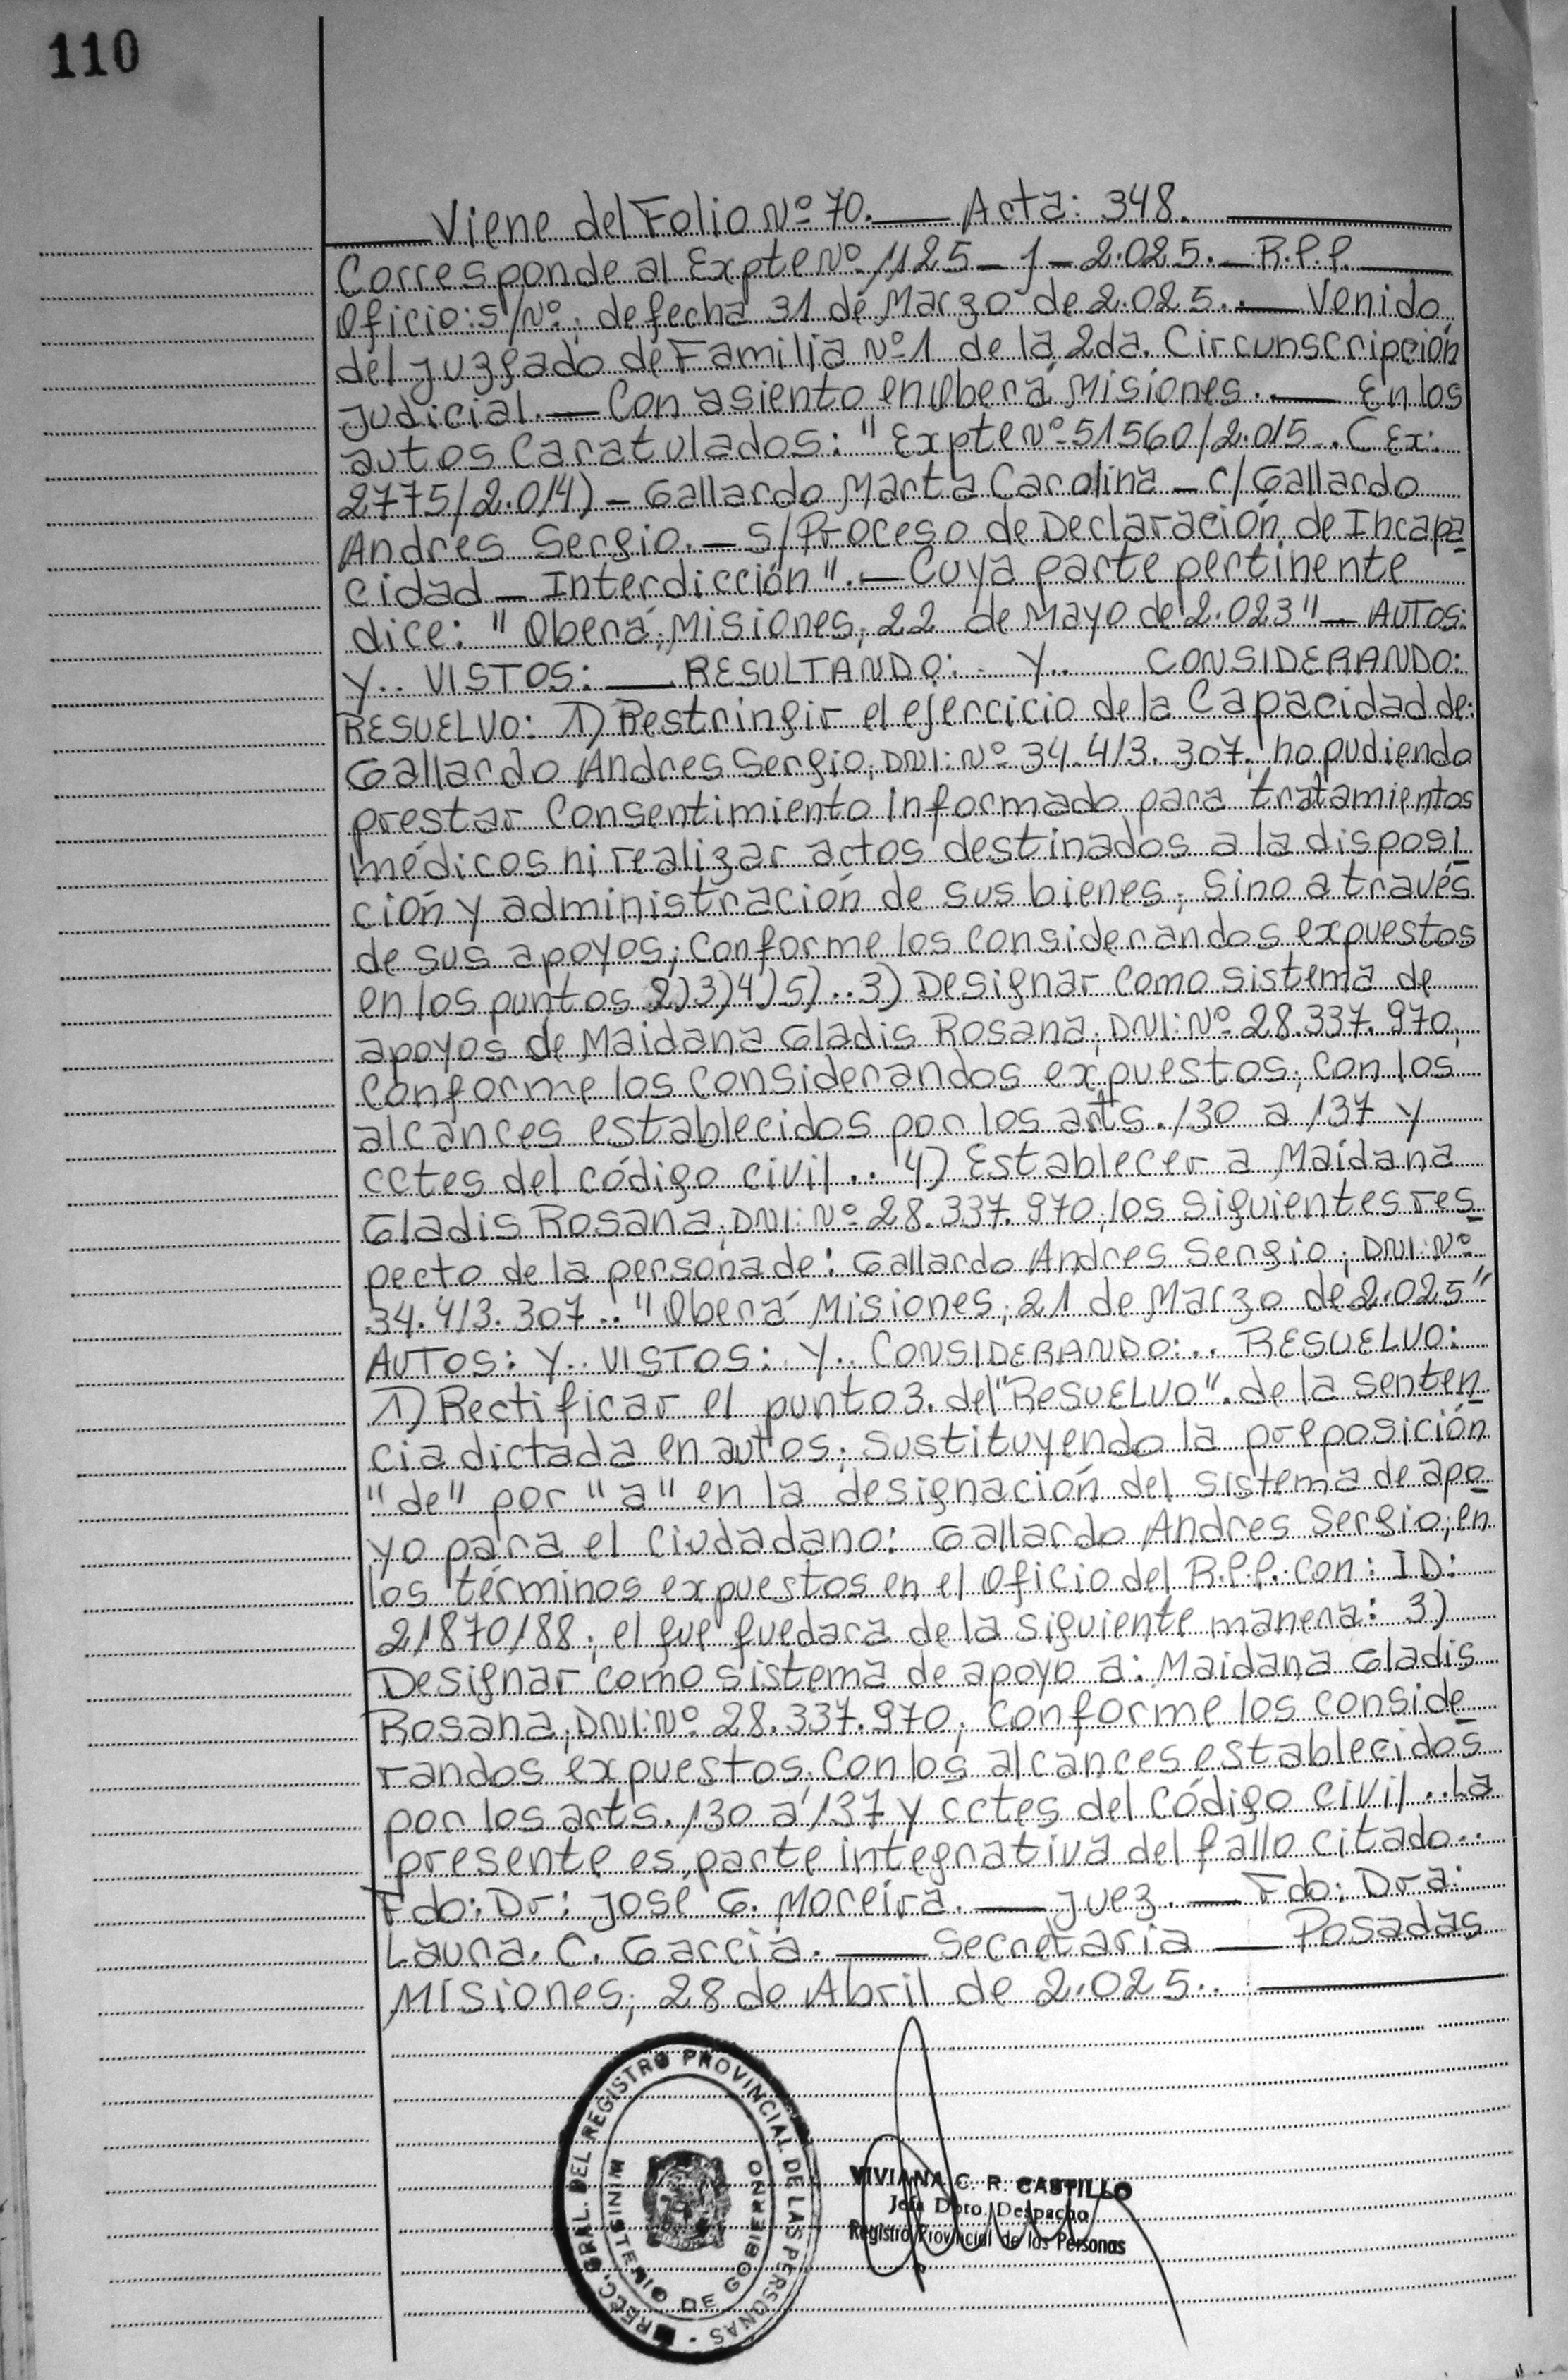 110
Viene del Folio Nº 70. — Acta: 348. —
Corresponde al Expte Nº 1125 - J - 2.025. — R.P.P. —
Oficio: S/Nº; de fecha 31 de Marzo de 2.025.. — Venido
del Juzgado de Familia Nº 1 de la 2da. Circunscripción
Judicial. — Con asiento en Oberá Misiones. — En los
autos Caratulados: "Expte Nº 51560/2.015.. (Ex:
2775/2.014) - Gallardo Marta Carolina - c/ Gallardo
Andres Sergio. - S/ Proceso de Declaración de Incapa
cidad - Interdicción". — Cuya parte pertinente
dice: "Oberá; Misiones; 22 de Mayo de 2.023" — AUTOS:
Y.. VISTOS: — RESULTANDO: .. Y.. CONSIDERANDO:
RESUELVO: 1) Restringir el ejercicio de la Capacidad de:
Gallardo Andres Sergio; DNI: Nº 34.413.307; no pudiendo
prestar Consentimiento Informado para tratamientos
médicos ni realizar actos destinados a la disposi
ción y administración de sus bienes; Sino a través
de sus apoyos; Conforme los considerandos expuestos
en los puntos 2)3)4)5)..3) Designar Como sistema de
apoyos de Maidana Gladis Rosana; DNI: Nº 28.337.970;
Conforme los Considerandos expuestos; con los
alcances establecidos por los arts. 130 a 137 y
cctes del código civil.. 4) Establecer a Maidana
Gladis Rosana; DNI: Nº 28.337.970; los siguientes res
pecto de la persona de: Gallardo Andres Sergio; DNI: Nº
34.413.307.. "Oberá Misiones; 21 de Marzo de 2.025"
AUTOS: Y.. VISTOS: Y.. CONSIDERANDO: .. RESUELVO:
1) Rectificar el punto 3. del "RESUELVO". de la senten
cia dictada en autos; Sustituyendo la preposición
"de" por "a" en la designación del sistema de apo
yo para el Ciudadano: Gallardo Andres Sergio; en
los términos expuestos en el Oficio del R.P.P. con: ID:
21870188; el que quedara de la siguiente manera: 3)
Designar como sistema de apoyo a: Maidana Gladis
Rosana; DNI: Nº 28.337.970; Conforme los conside
randos expuestos; Con los alcances establecidos
por los arts. 130 a 137 y cctes del Código civil.. La
presente es parte integrativa del fallo citado..
Fdo: Dr: José G. Moreira. — Juez. — Fdo: Dra:
Laura. C. Garcia. — Secretaria — Posadas
Misiones; 28 de Abril de 2.025.. —
DIREC. GRAL. DEL REGISTRO PROVINCIAL DE LAS PERSONAS
MINISTERIO DE GOBIERNO
VIVIANA C. R. CASTILLO
Jefa Dpto. Despacho
Registro Provincial de las Personas